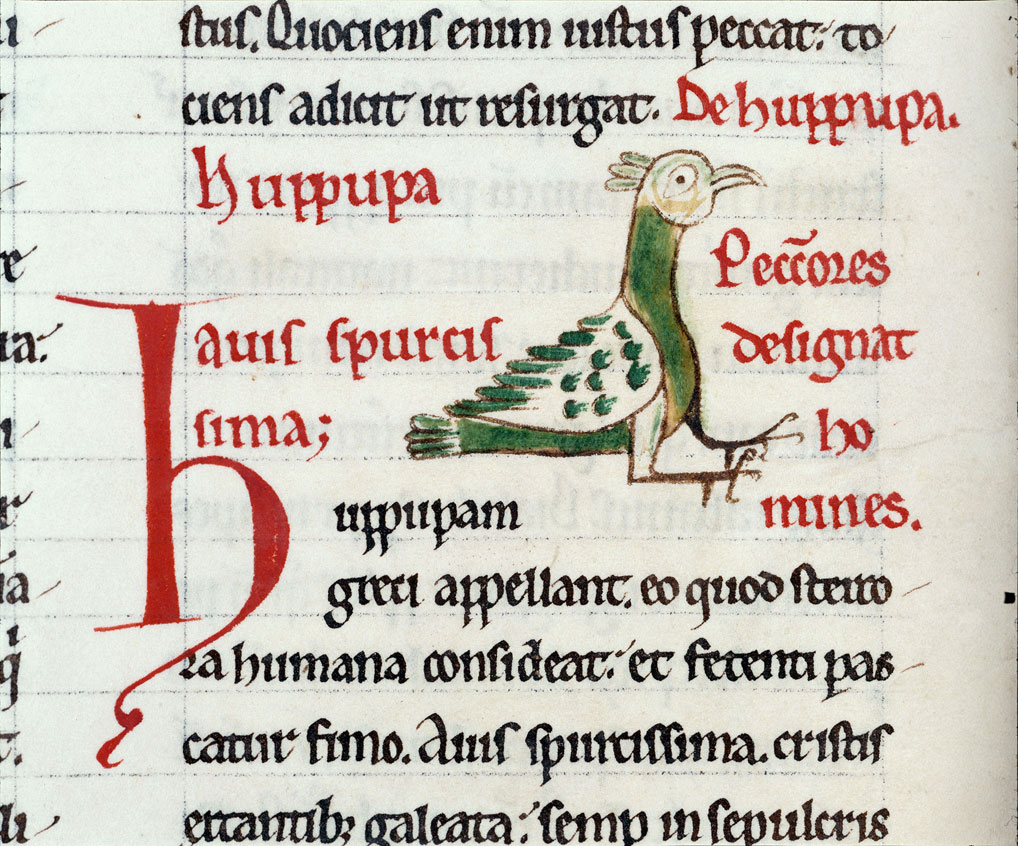 stus. Quociens enim iustus peccat: to
ciens adicit ut resurgat. De huppupa.
Huppupa
auis spurcis
sima;
Peccc̄ores
designat
ho
mines.
Huppupam
greci appellant. eo quod sterco
ra humana consideat: et fetenti pas
catur fimo. Auis spurcissima. cristis
extantib; galeata: semp in sepulcris